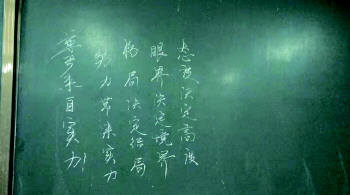 态度决定高度
眼界决定境界
格局决定结局
努力带来实力
尊重来自实力!